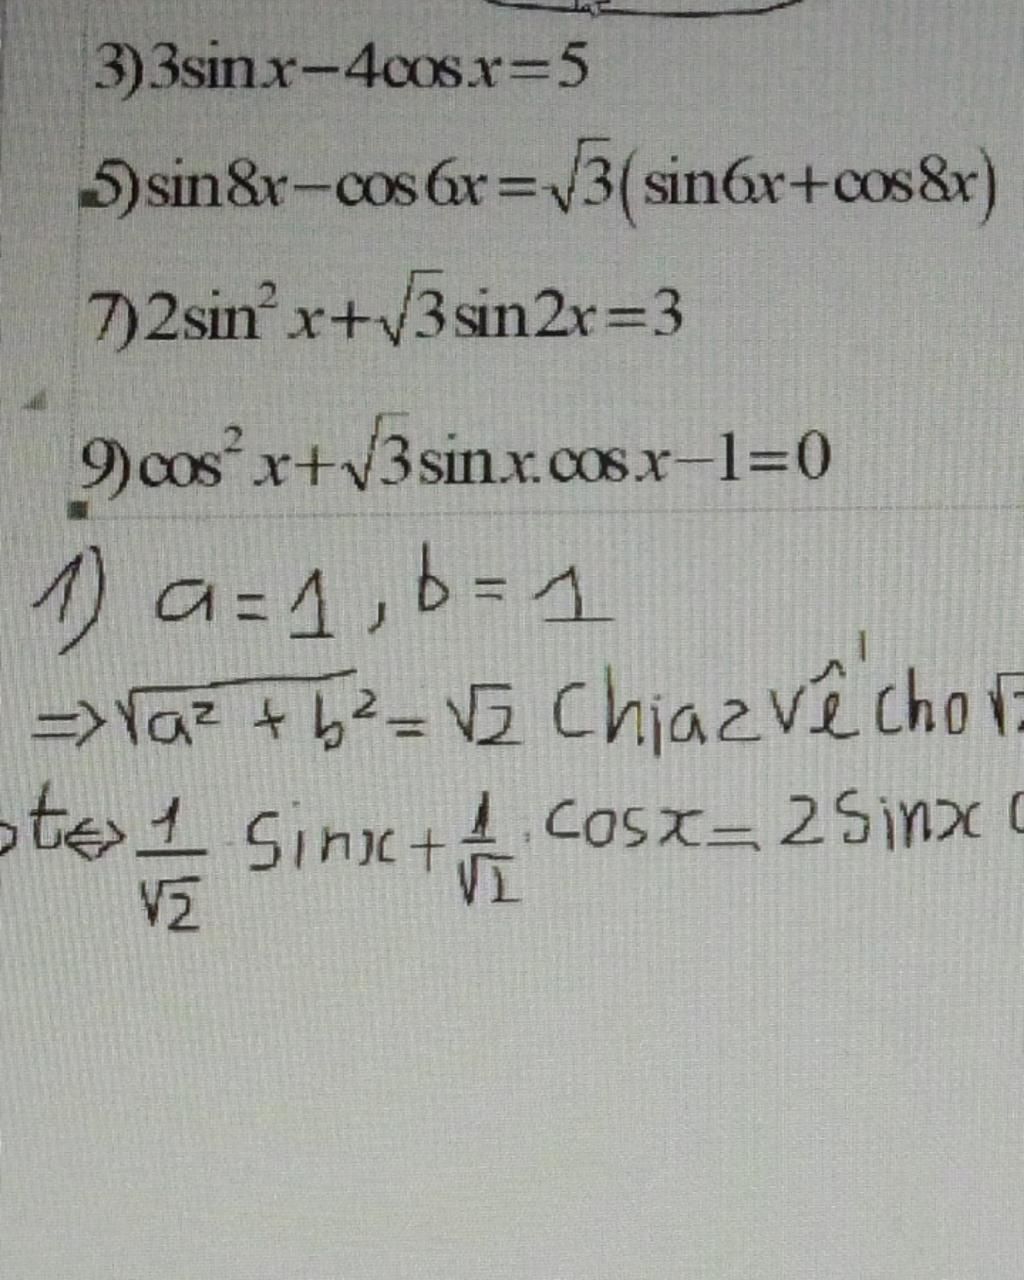 3) 3sinx−4cosx=5
5) sin8x−cos6x=√3(sin6x+cos8x)
7) 2sin² x+√3sin2x=3
9) cos² x+√3sinx.cosx−1=0
1) a=1, b=1
=> √a² + b² = √2 Chia 2 vế cho √2
pt <=> 1/√2 Sinx + 1/√2 . cosx = 2 Sinx